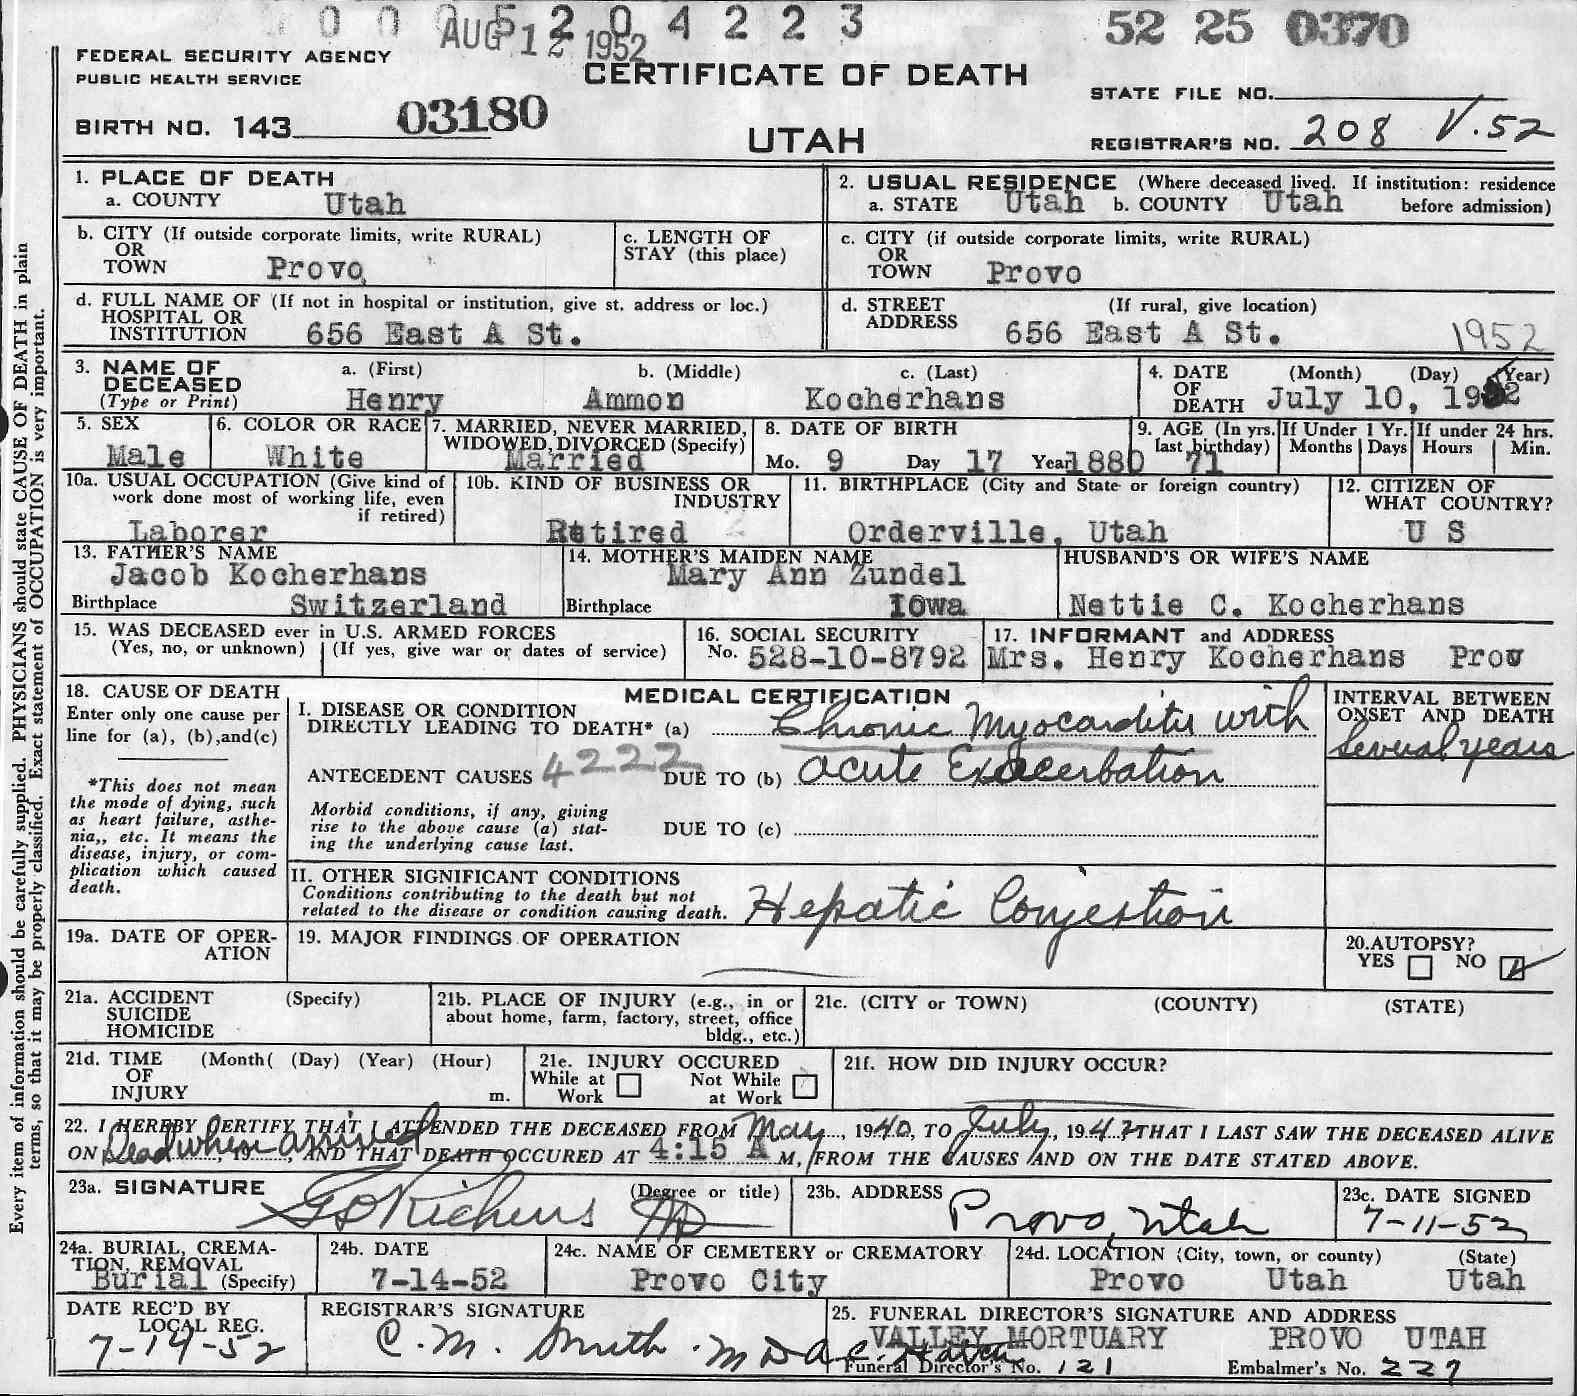 0 0 0 5 2 0 4 2 2 3
AUG 12 1952
52 25 0370
FEDERAL SECURITY AGENCY
PUBLIC HEALTH SERVICE
CERTIFICATE OF DEATH
STATE FILE NO.
BIRTH NO. 143 03180
UTAH
REGISTRAR'S NO. 208 V.52
1. PLACE OF DEATH
a. COUNTY Utah
2. USUAL RESIDENCE (Where deceased lived. If institution: residence before admission)
a. STATE Utah b. COUNTY Utah
b. CITY (If outside corporate limits, write RURAL)
OR
TOWN Provo,
c. LENGTH OF
STAY (this place)
c. CITY (if outside corporate limits, write RURAL)
OR
TOWN Provo
d. FULL NAME OF (If not in hospital or institution, give st. address or loc.)
HOSPITAL OR
INSTITUTION 656 East A St.
d. STREET (If rural, give location)
ADDRESS 656 East A St.
1952
3. NAME OF
DECEASED
(Type or Print)
a. (First) b. (Middle) c. (Last)
Henry Ammon Kocherhans
4. DATE (Month) (Day) (Year)
OF
DEATH July 10, 1952
5. SEX
Male
6. COLOR OR RACE
White
7. MARRIED, NEVER MARRIED,
WIDOWED, DIVORCED (Specify)
Married
8. DATE OF BIRTH
Mo. 9 Day 17 Year 1880
9. AGE (In yrs.
last birthday)
71
If Under 1 Yr.
Months Days
If under 24 hrs.
Hours Min.
10a. USUAL OCCUPATION (Give kind of
work done most of working life, even
if retired)
Laborer
10b. KIND OF BUSINESS OR
INDUSTRY
Retired
11. BIRTHPLACE (City and State or foreign country)
Orderville, Utah
12. CITIZEN OF
WHAT COUNTRY?
U S
13. FATHER'S NAME
Jacob Kocherhans
Birthplace Switzerland
14. MOTHER'S MAIDEN NAME
Mary Ann Zundel
Birthplace Iowa
HUSBAND'S OR WIFE'S NAME
Nettie C. Kocherhans
15. WAS DECEASED ever in U.S. ARMED FORCES
(Yes, no, or unknown) (If yes, give war or dates of service)
16. SOCIAL SECURITY
No. 528-10-8792
17. INFORMANT and ADDRESS
Mrs. Henry Kocherhans Prov
18. CAUSE OF DEATH
Enter only one cause per
line for (a), (b), and (c)
*This does not mean
the mode of dying, such
as heart failure, asthe-
nia,, etc. It means the
disease, injury, or com-
plication which caused
death.
MEDICAL CERTIFICATION
I. DISEASE OR CONDITION
DIRECTLY LEADING TO DEATH* (a) Chronic Myocarditis with
ANTECEDENT CAUSES 4222 DUE TO (b) acute Exacerbation
Morbid conditions, if any, giving
rise to the above cause (a) stat-
ing the underlying cause last.
DUE TO (c)
INTERVAL BETWEEN
ONSET AND DEATH
Several years
II. OTHER SIGNIFICANT CONDITIONS
Conditions contributing to the death but not
related to the disease or condition causing death.
Hepatic Congestion
19a. DATE OF OPER-
ATION
19. MAJOR FINDINGS OF OPERATION
20. AUTOPSY?
YES NO
21a. ACCIDENT (Specify)
SUICIDE
HOMICIDE
21b. PLACE OF INJURY (e.g., in or
about home, farm, factory, street, office
bldg., etc.)
21c. (CITY or TOWN) (COUNTY) (STATE)
21d. TIME (Month( (Day) (Year) (Hour)
OF
INJURY m.
21e. INJURY OCCURED
While at Work Not While at Work
21f. HOW DID INJURY OCCUR?
22. I HEREBY CERTIFY THAT I ATTENDED THE DECEASED FROM May, 1940, TO July, 194 THAT I LAST SAW THE DECEASED ALIVE
ON Dead when arrived, 19, AND THAT DEATH OCCURED AT 4:15 A M, FROM THE CAUSES AND ON THE DATE STATED ABOVE.
23a. SIGNATURE (Degree or title)
Richens MD
23b. ADDRESS
Provo, Utah
23c. DATE SIGNED
7-11-52
24a. BURIAL, CREMA-
TION, REMOVAL
Burial (Specify)
24b. DATE
7-14-52
24c. NAME OF CEMETERY or CREMATORY
Provo City
24d. LOCATION (City, town, or county) (State)
Provo Utah Utah
DATE REC'D BY
LOCAL REG.
7-14-52
REGISTRAR'S SIGNATURE
C. M. Smith. MD
25. FUNERAL DIRECTOR'S SIGNATURE AND ADDRESS
VALLEY MORTUARY PROVO UTAH
Funeral Director's No. 121 Embalmer's No. 227
Every item of information should be carefully supplied. PHYSICIANS should state CAUSE OF DEATH in plain
terms, so that it may be properly classified. Exact statement of OCCUPATION is very important.